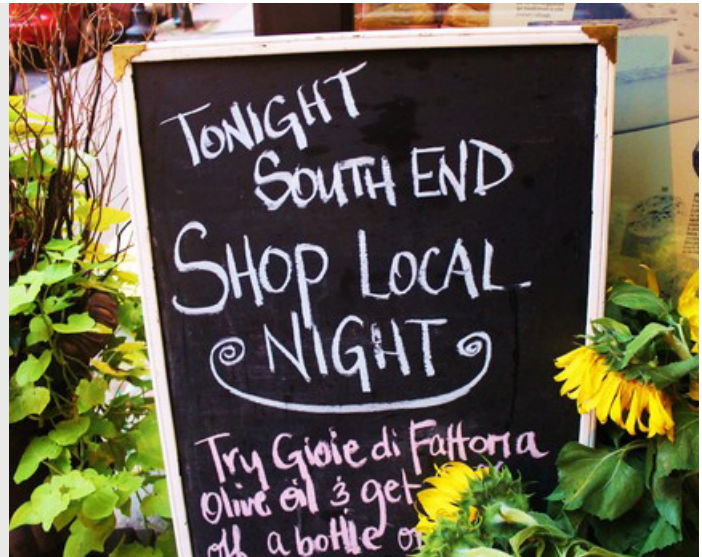 TONIGHT
SOUTH END
SHOP LOCAL
NIGHT
Try Gioie di Fattoria
Olive oil & get
off a bottle